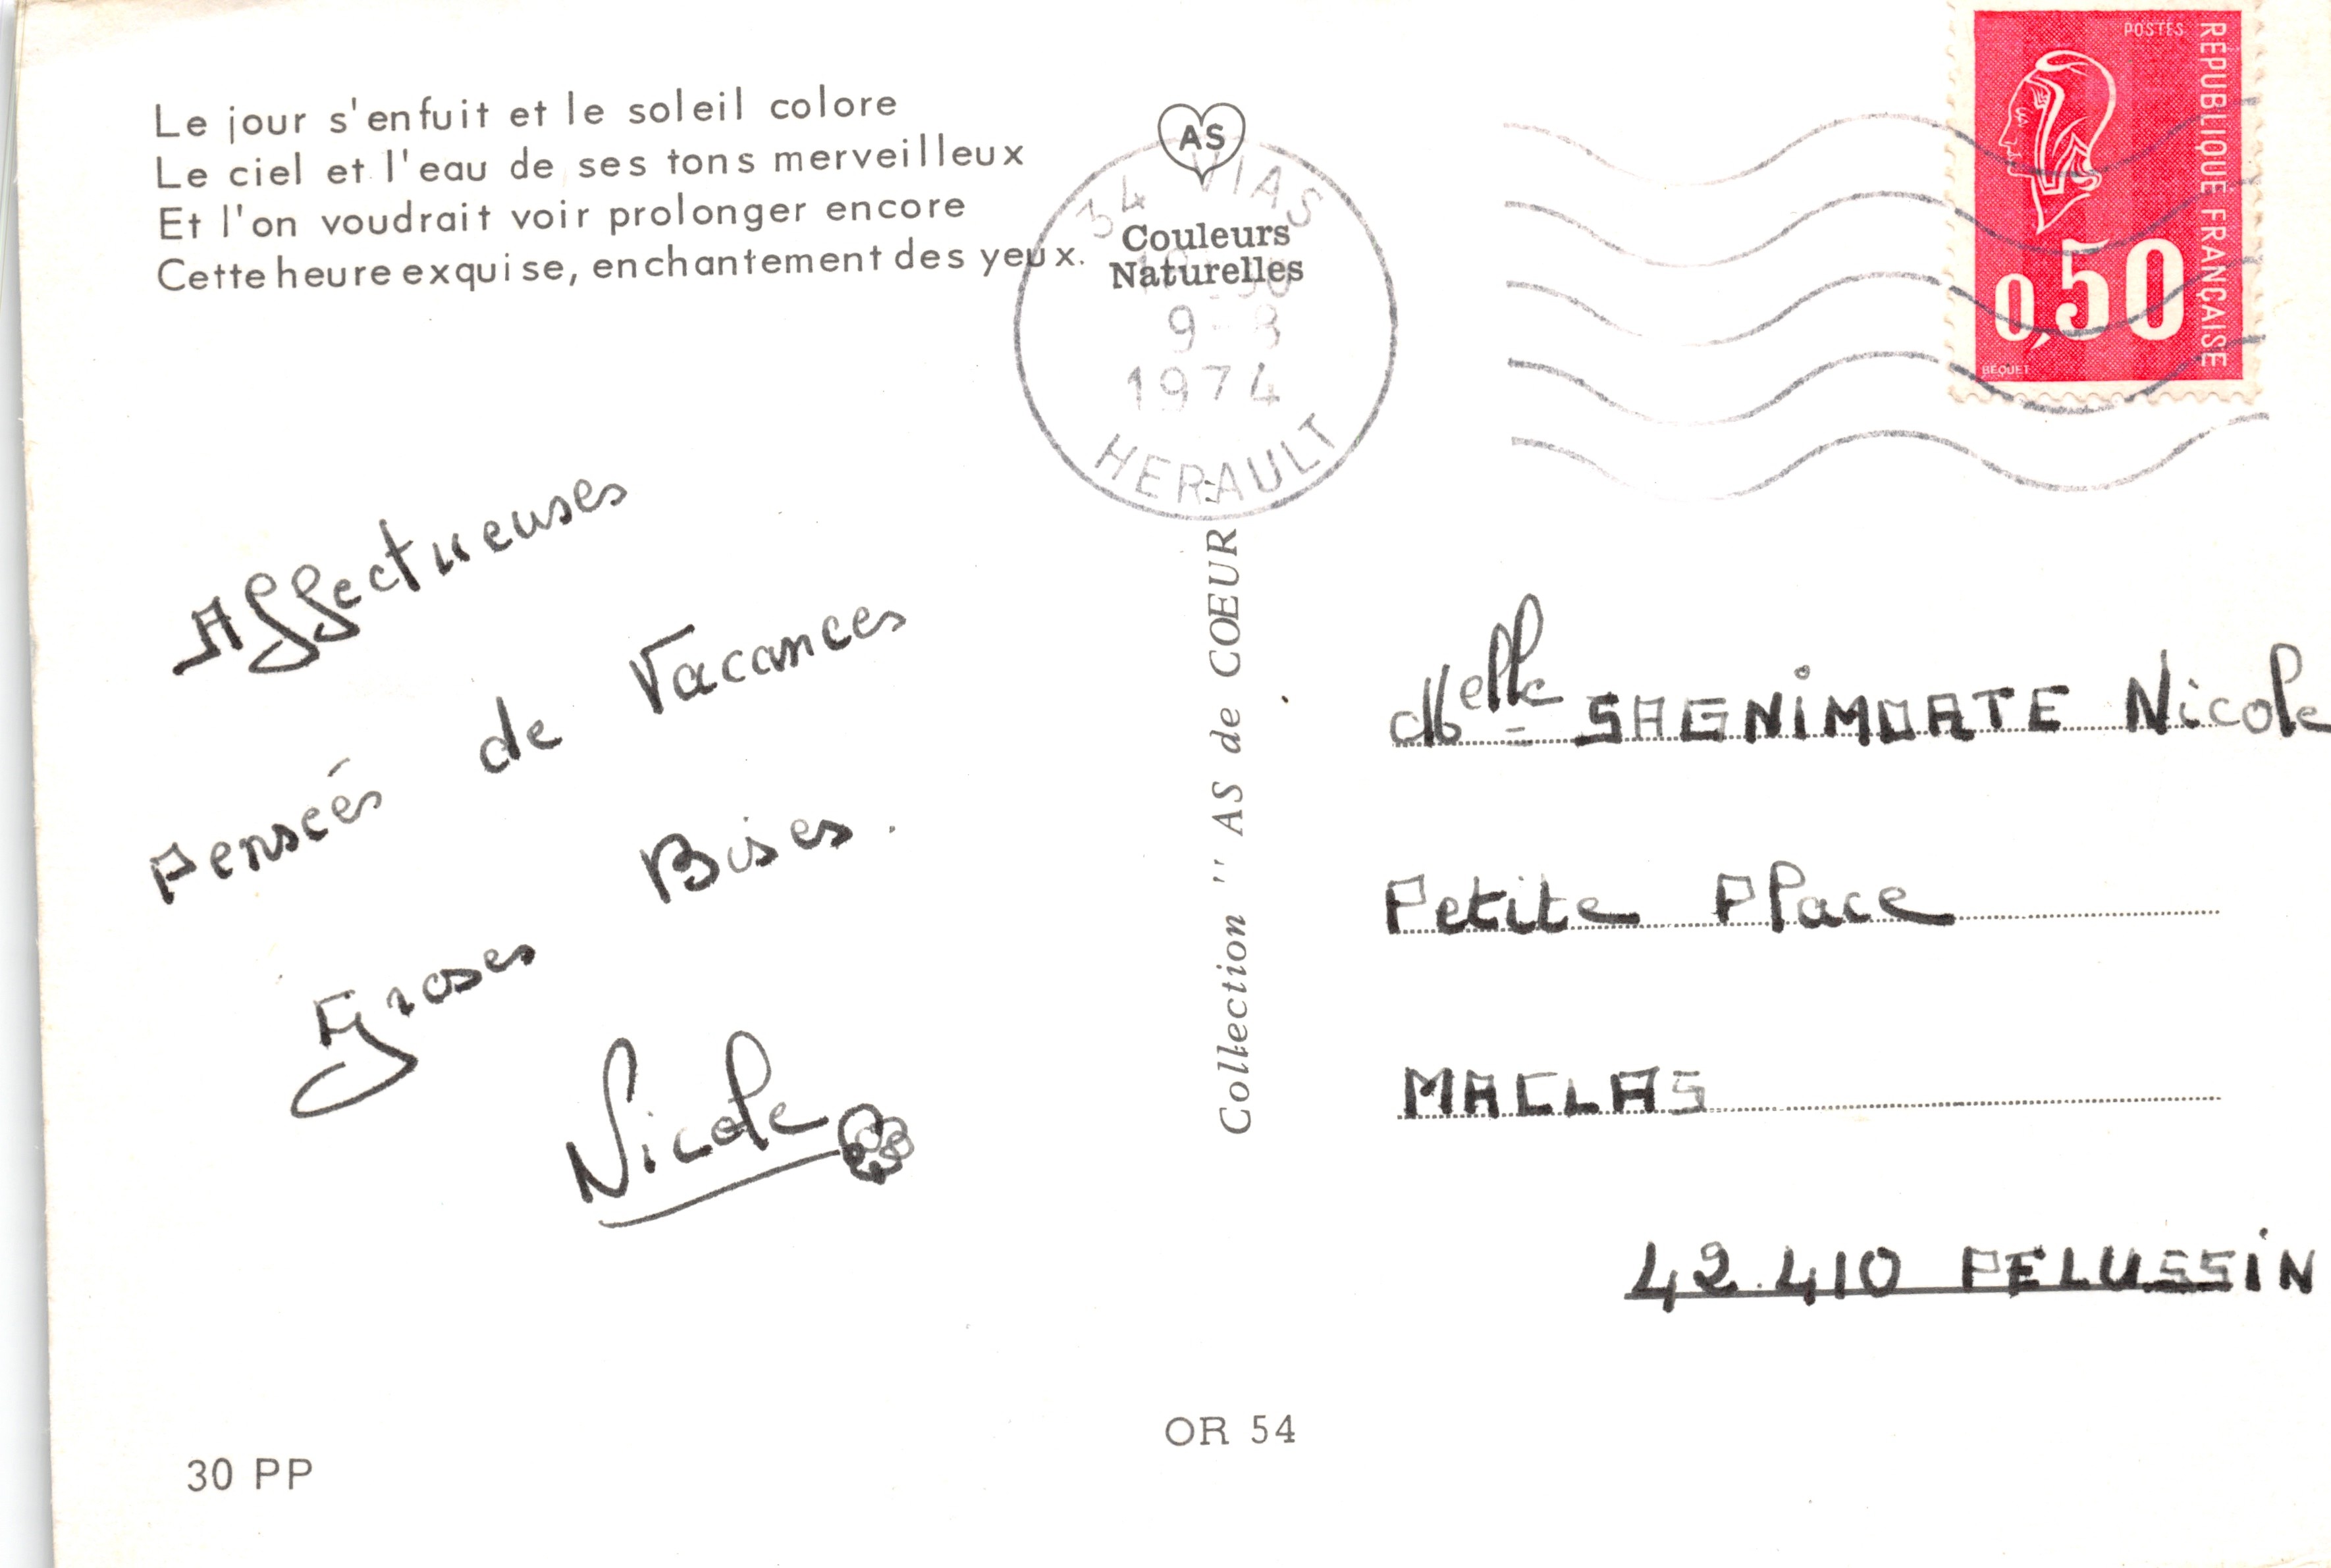 Le jour s'enfuit et le soleil colore
Le ciel et l'eau de ses tons merveilleux
Et l'on voudrait voir prolonger encore
Cette heure exquise, enchantement des yeux.
AS
Couleurs
Naturelles
34 VIAS
9-8
1974
HERAULT
POSTES
RÉPUBLIQUE FRANÇAISE
0,50
BÉQUET
Affectueuses
Pensées de Vacances
Groses Bises.
Nicole
Collection " AS de COEUR
Melle SAGNIMORTE Nicole
Petite Place
MACLAS
42.410 PELUSSIN
OR 54
30 PP